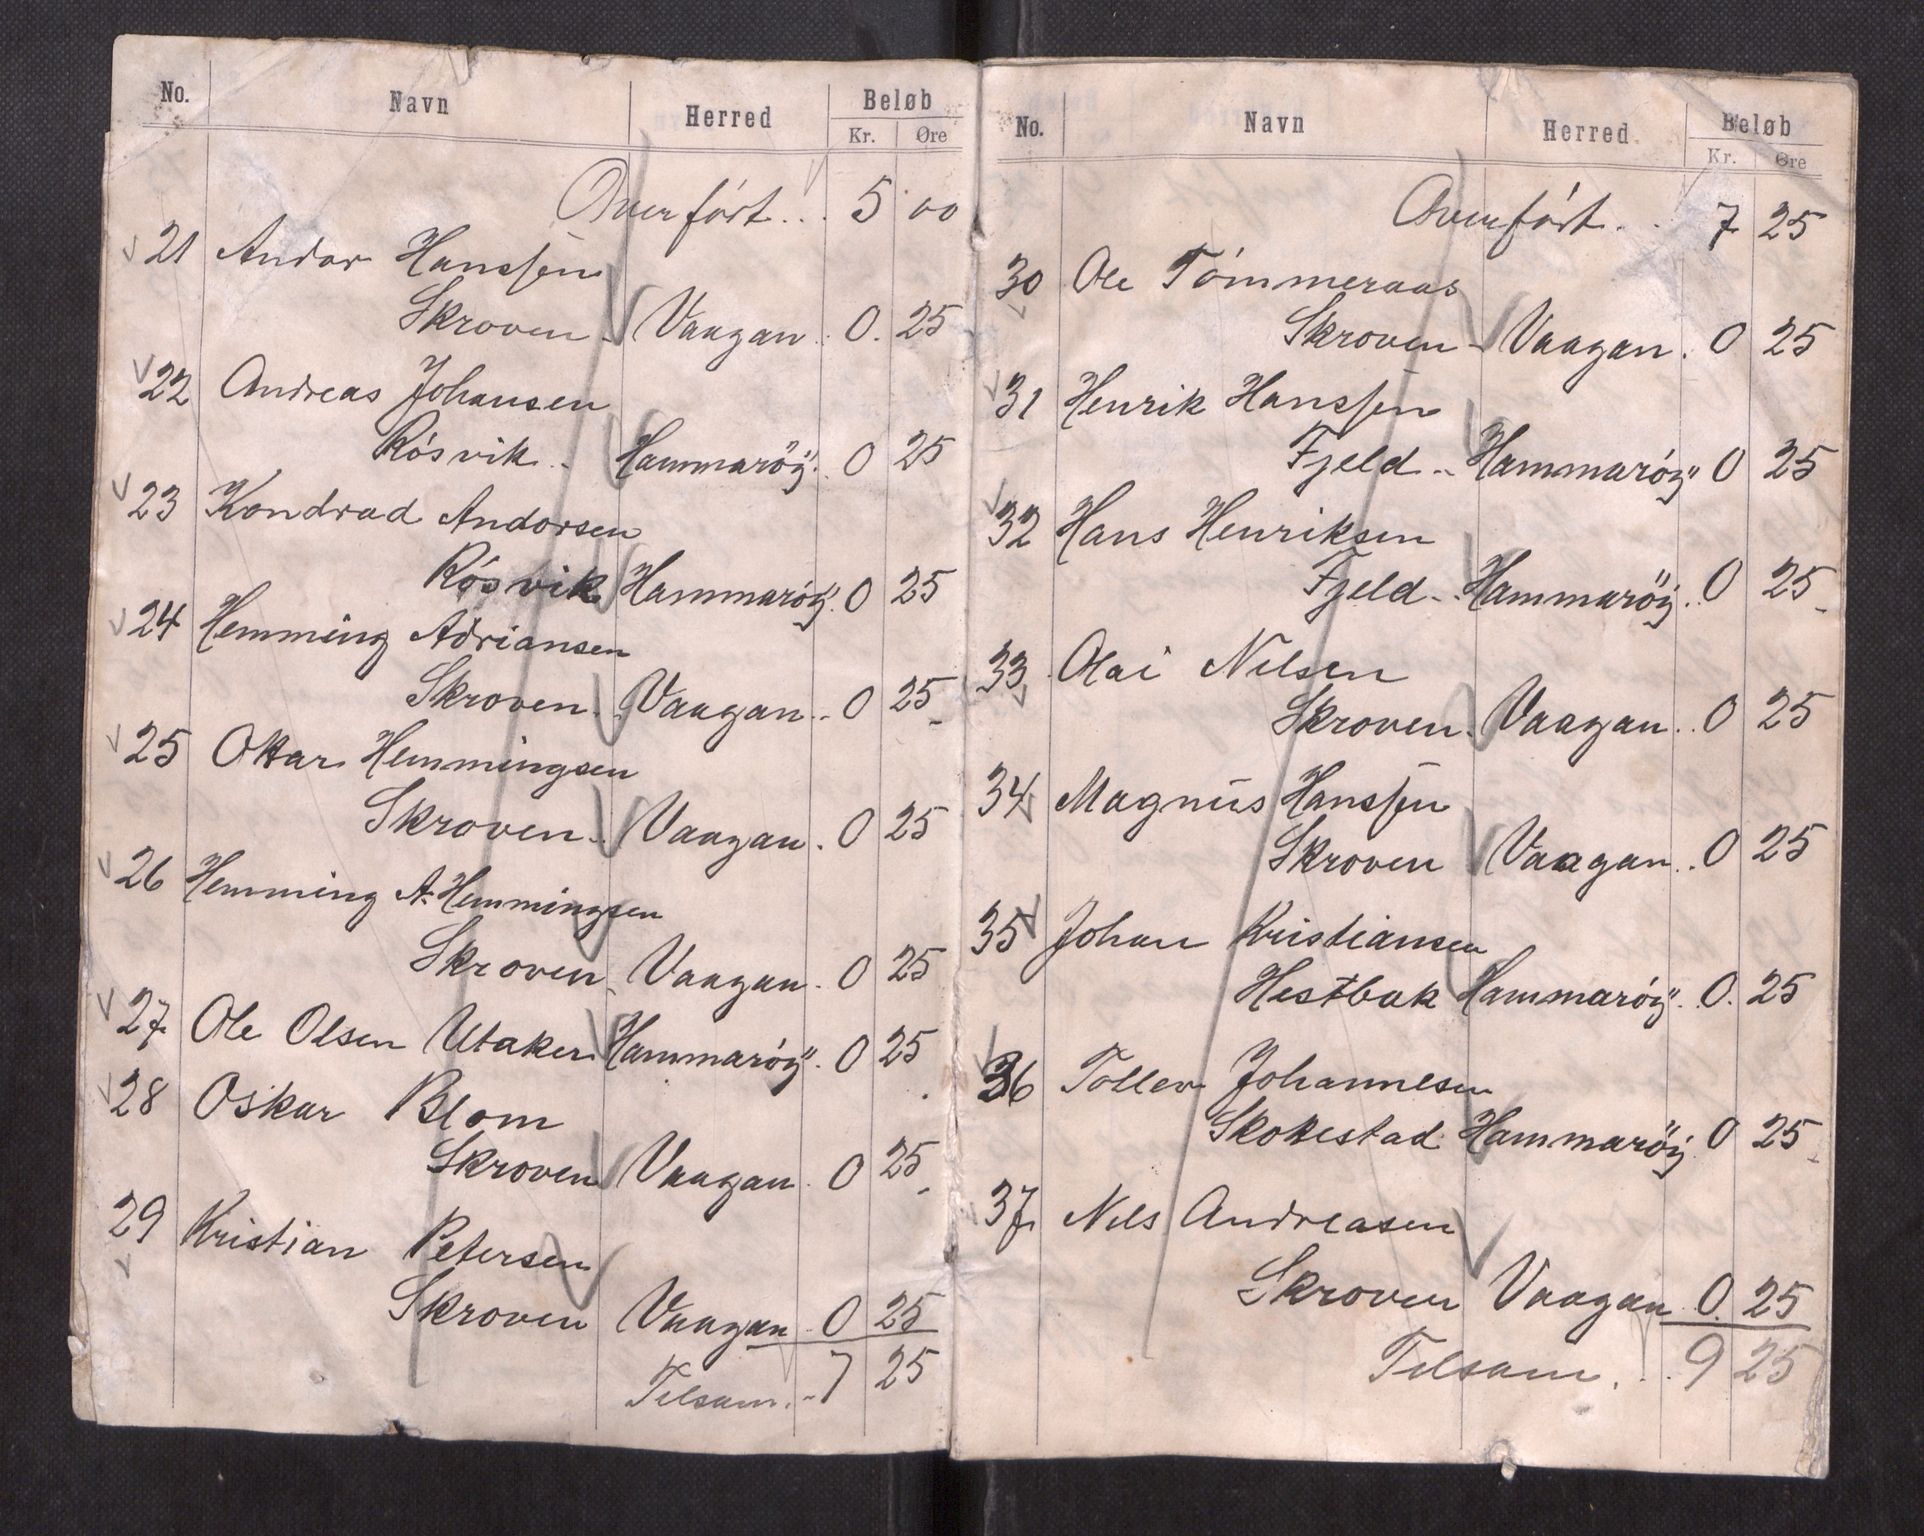 No. Navn Herred Beløb
Kr. Øre
Overfört... 5 00
21 Andor Hanssen
Skroven - Vaagan . 0. 25
22 Andreas Johansen
Rösvik .. Hammaröy. 0 25
23 Kondrad Andorsen
Rösvik Hammaröy. 0 25
24 Hemming Adriansen
Skroven. Vaagan.. 0 25
25 Ottar Hemmingsen
Skroven. Vaagan. 0 25
26 Hemming A. Hemmingsen
Skroven Vaagan. 0 25
27 Ole Olsen Utaker Hammaröy. 0 25
28 Oskar Blom
Skroven Vaagan. 0 25
29 Kristian Petersen
Skroven Vaagan. 0 25
Tilsam.. 7 25
No. Navn Herred Beløb
Kr. Øre
Overfört. . 7 25
30 Ole Tömmeraas
Skroven - Vaagan. 0 25
31 Henrik Hanssen
Fjeld .. Hammaröy 0 25
32 Hans Henriksen
Fjeld .. Hammaröy. 0 25
33 Olai Nilsen
Skroven. Vaagan.. 0 25
34 Magnus Hanssen
Skroven Vaagan.. 0 25
35 Johan Kristiansen
Hestbak Hammaröy. 0. 25
36 Tollev Johannesen
Skottestad Hammaröy 0 25
37 Nils Andreasen
Skroven Vaagan. 0. 25
Tilsam. .. 9 25